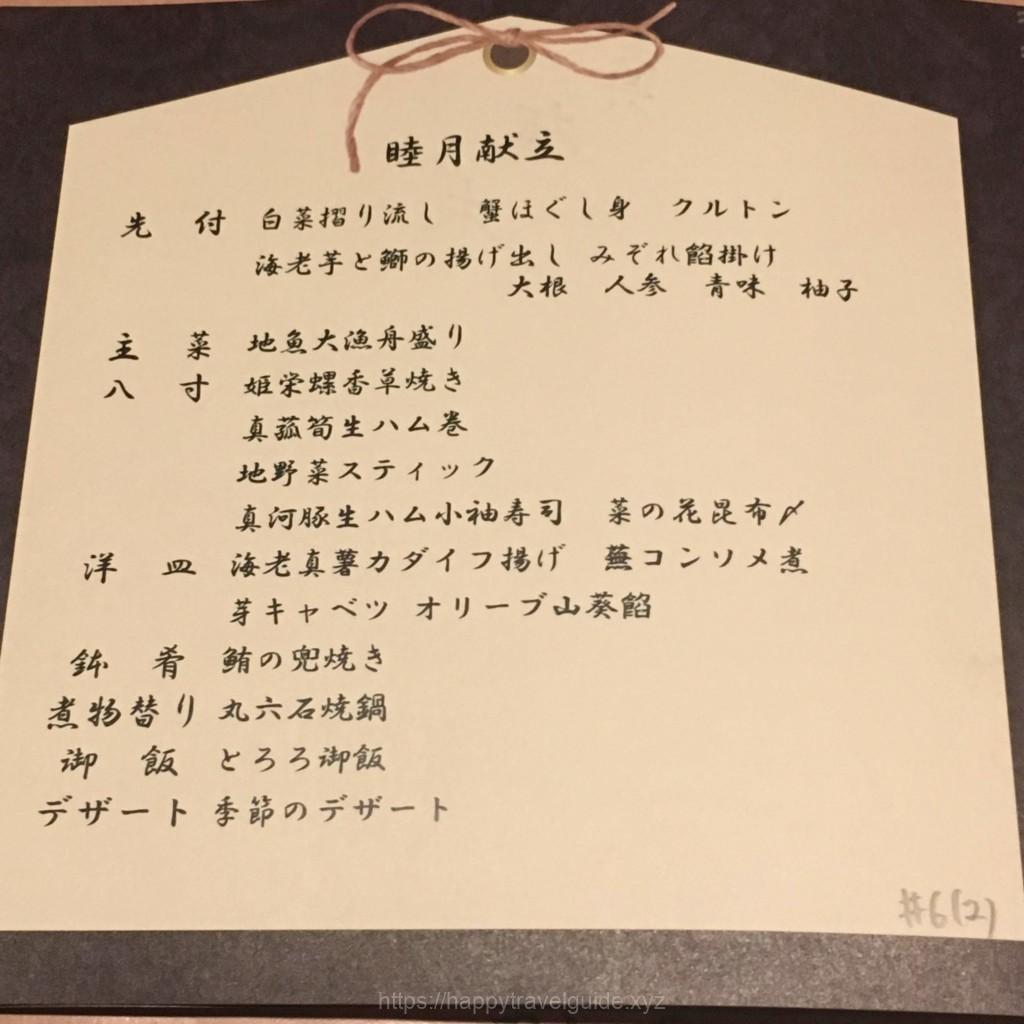 睦月献立
先　付　白菜摺り流し　蟹ほぐし身　クルトン
海老芋と鰤の揚げ出し　みぞれ餡掛け
大根　人参　青味　柚子
主　菜　地魚大漁舟盛り
八　寸　姫栄螺香草焼き
真菰筍生ハム巻
地野菜スティック
真河豚生ハム小袖寿司　菜の花昆布〆
洋　皿　海老真薯カダイフ揚げ　蕪コンソメ煮
芽キャベツ　オリーブ山葵餡
鉢　肴　鮪の兜焼き
煮物替り　丸六石焼鍋
御　飯　とろろ御飯
デザート　季節のデザート
#6(2)
https://happytravelguide.xyz